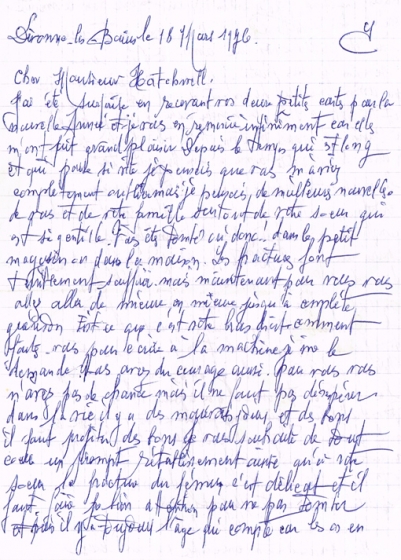 Divonne les Bains le 18 Mars 1976.
4
Cher Monsieur Hatchwell.
J'ai été surprise en recevant vos deux petits carts pour la
nouvelle Année et je vous en remercie infiniment car elles
m'ont fait grand plaisir depuis le temps qui est long
et qui passe si vite je pensais que vous m'aviez
complètement oublié mais je pensais, de meilleurs nouvelles
de vous et de votre famille surtout de votre soeur qui
est si gentille. Vous êtes tombé où donc! dans le petit
magasin ou dans la maison. Les fractures font
souffrir mais maintenant pour vous vous
allez aller de mieux en mieux jusqu'à complète
guérison Est ce que c'est votre bras droit comment
faites vous pour écrire à la machine je me le
demande vous avez du courage aussi. pour vous vous
n'avez pas de chance mais il ne faut pas désespérer
dans la vie il y a des mauvais jours et des bons
il faut profiter des bons je vous souhaite de tout
coeur un prompt rétablissement ainsi qu'à votre
soeur la fracture du fémur c'est délicat et il
faut faire bien attention pour ne pas tomber
et puis il y a toujours l'âge qui compte car les os en